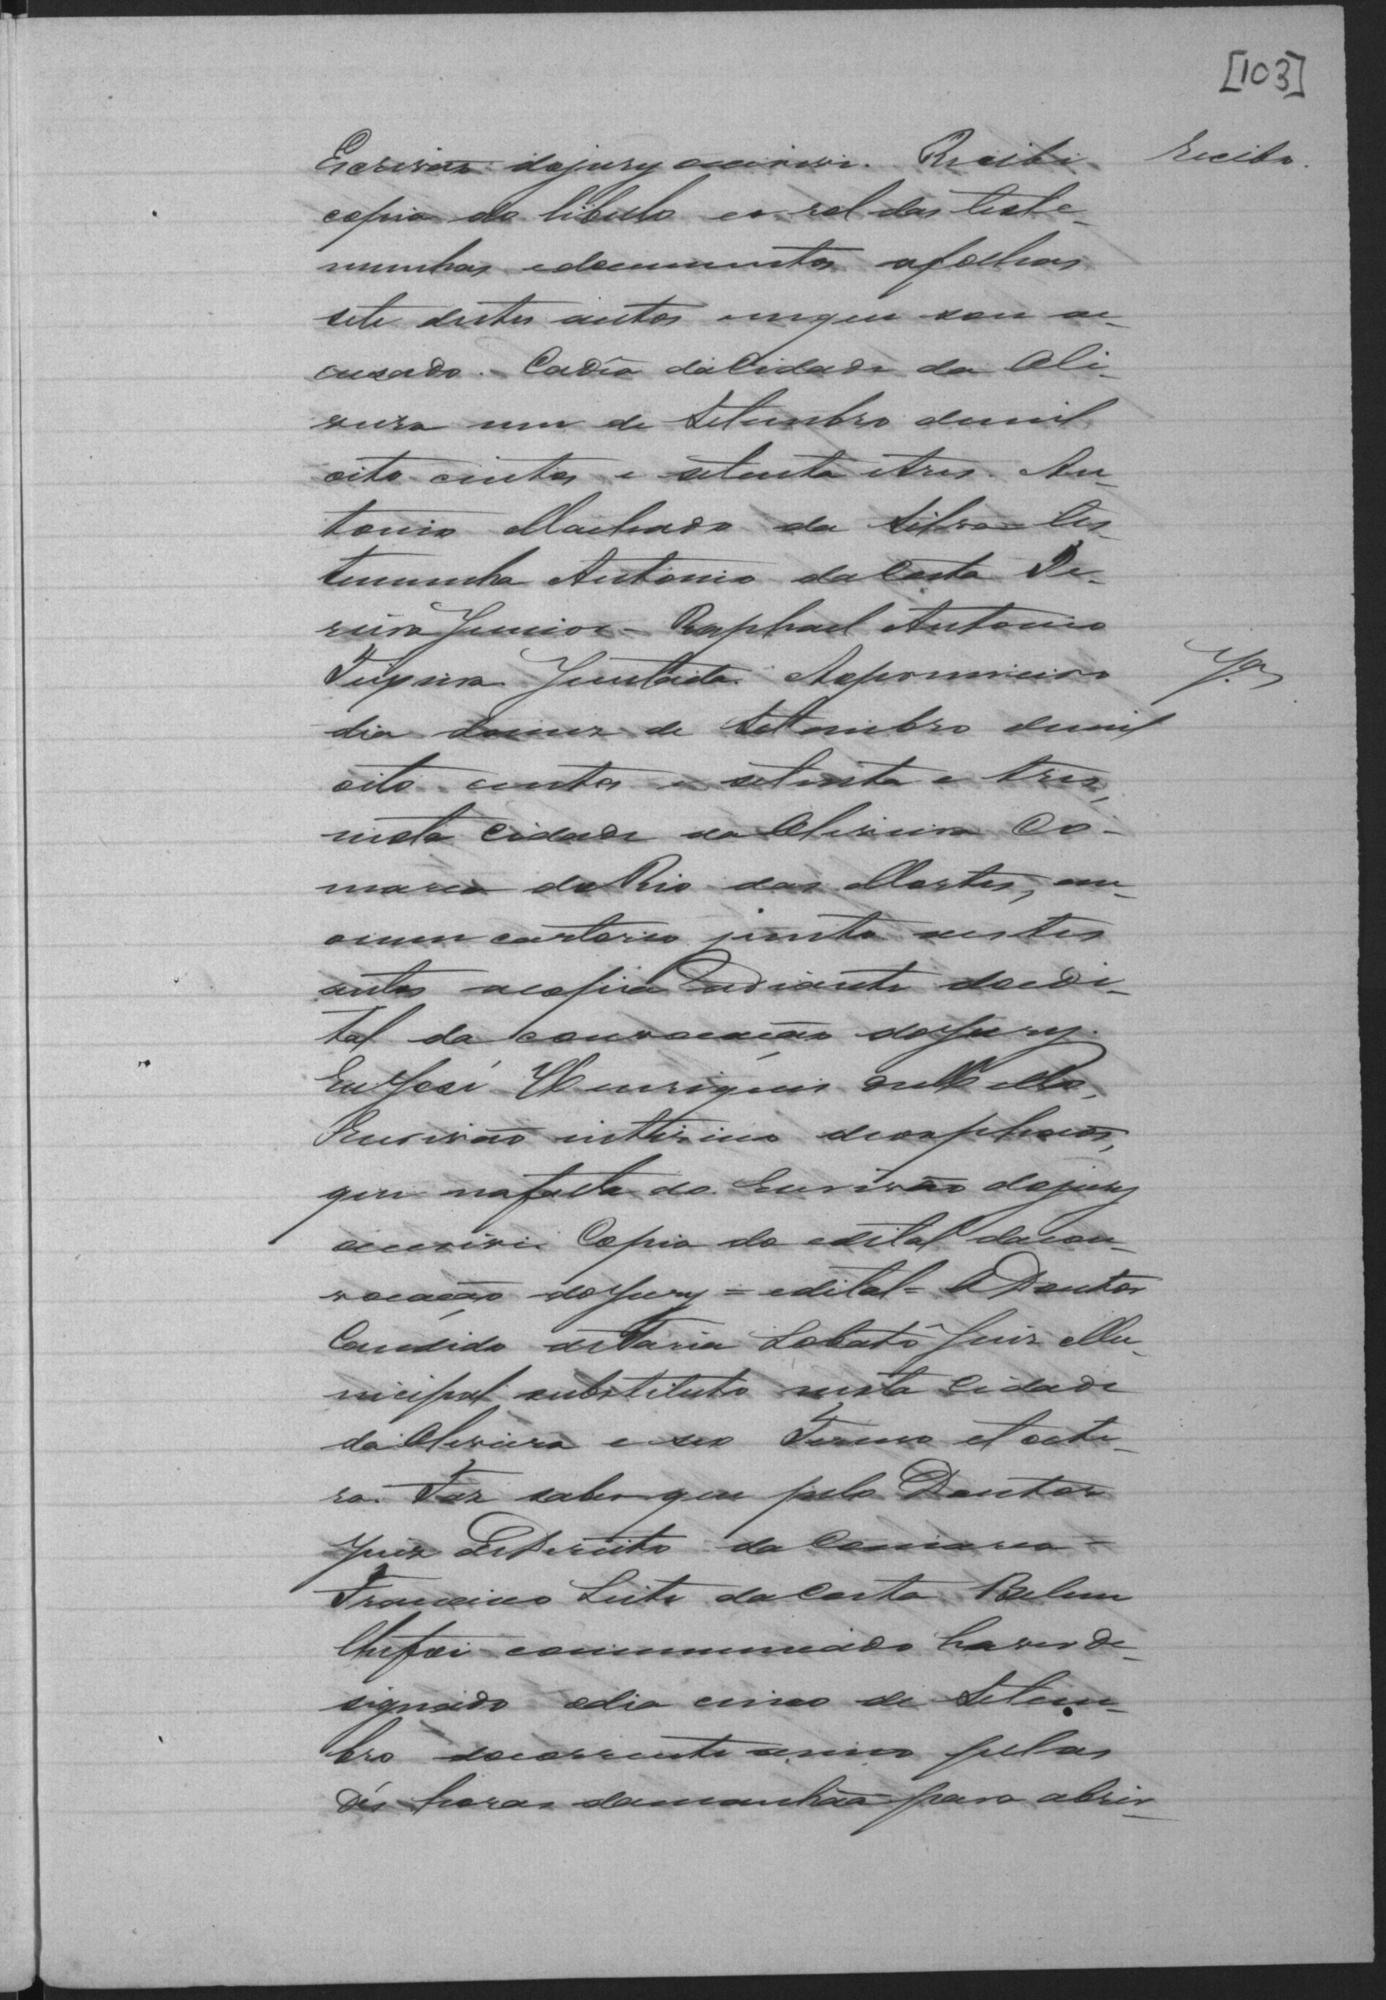 [103]
Escrivão do jury escrevi. Recibi Recibo.
copia do libello e o rol das teste-
munhas e documentos a folhas
sete destes autos em que sou ac-
cusado. Cadêa da Cidade da Oli-
veira um de Setembro de mil
oito centos e setenta e tres. An-
tonio Machado da Silva = Tes-
temunha Antonio da Costa Pe-
reira Junior = Raphael Antonio
Teixeira Juntada. Ao primeiro
dia do mez de Setembro de mil
oito centos e setenta e tres,
nesta Cidade da Oliveira Co-
marca do Rio das Mortes, em
o meu cartorio junto a estes
autos a copia adiante do edi-
tal da convocação do Jury.
Eu José Henriques de Mello,
Escrivão interino de orphaos,
que na falta do Escrivão do jury
escrevi. Copia do edital da con-
vocação do Jury = edital = O Doutor
Candido de Faria Lobato Juiz Mu-
nicipal substituto nesta Cidade
da Oliveira e seo Termo et cete-
ra. Faz saber que pelo Doutor
Juiz de Direito da Comarca =
Francisco Leite da Costa Belem
lhe foi communicado haver de-
signado o dia cinco de Setem-
bro do corrente anno pelas
dés horas da manhãa para abrir